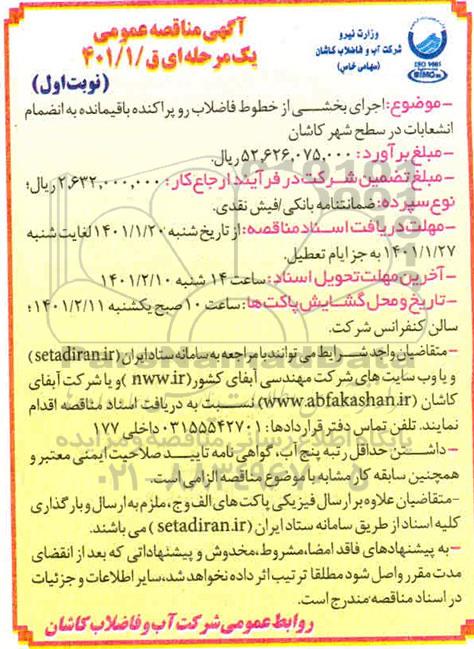 آگهی مناقصه عمومی
یک مرحله ای ق/۴۰۱/۱
(نوبت اول)
وزارت نیرو
شرکت آب و فاضلاب کاشان
(سهامی خاص)
ISO 9001
-موضوع: اجرای بخشی از خطوط فاضلاب رو پراکنده باقیمانده به انضمام
انشعابات در سطح شهر کاشان
-مبلغ برآورد: ۵۲،۶۲۶،۰۷۵،۰۰۰ ریال.
-مبلغ تضمین شرکت در فرآیند ارجاع کار: ۲،۶۳۲،۰۰۰،۰۰۰ ریال؛
نوع سپرده: ضمانتنامه بانکی/فیش نقدی.
-مهلت دریافت اسناد مناقصه: از تاریخ شنبه ۱۴۰۱/۱/۲۰ لغایت شنبه
۱۴۰۱/۱/۲۷ به جز ایام تعطیل.
-آخرین مهلت تحویل اسناد: ساعت ۱۴ شنبه ۱۴۰۱/۲/۱۰
-تاریخ و محل گشایش پاکت ها: ساعت ۱۰ صبح یکشنبه ۱۴۰۱/۲/۱۱؛
سالن کنفرانس شرکت.
-متقاضیان واجد شرایط می توانند با مراجعه به سامانه ستاد ایران (setadiran.ir)
و یا وب سایت های شرکت مهندسی آبفای کشور (nww.ir) و یا شرکت آبفای
کاشان (www.abfakashan.ir) نسبت به دریافت اسناد مناقصه اقدام
نمایند. تلفن تماس دفتر قراردادها: ۰۳۱۵۵۵۴۲۷۰۱ داخلی ۱۷۷
-داشتن حداقل رتبه پنج آب، گواهی نامه تایید صلاحیت ایمنی معتبر و
همچنین سابقه کار مشابه با موضوع مناقصه الزامی است.
-متقاضیان علاوه بر ارسال فیزیکی پاکت های الف و ج، ملزم به ارسال و بارگذاری
کلیه اسناد از طریق سامانه ستاد ایران (setadiran.ir) می باشند.
-به پیشنهادهای فاقد امضا، مشروط، مخدوش و پیشنهاداتی که بعد از انقضای
مدت مقرر واصل شود مطلقا ترتیب اثر داده نخواهد شد، سایر اطلاعات و جزئیات
در اسناد مناقصه مندرج است.
روابط عمومی شرکت آب و فاضلاب کاشان